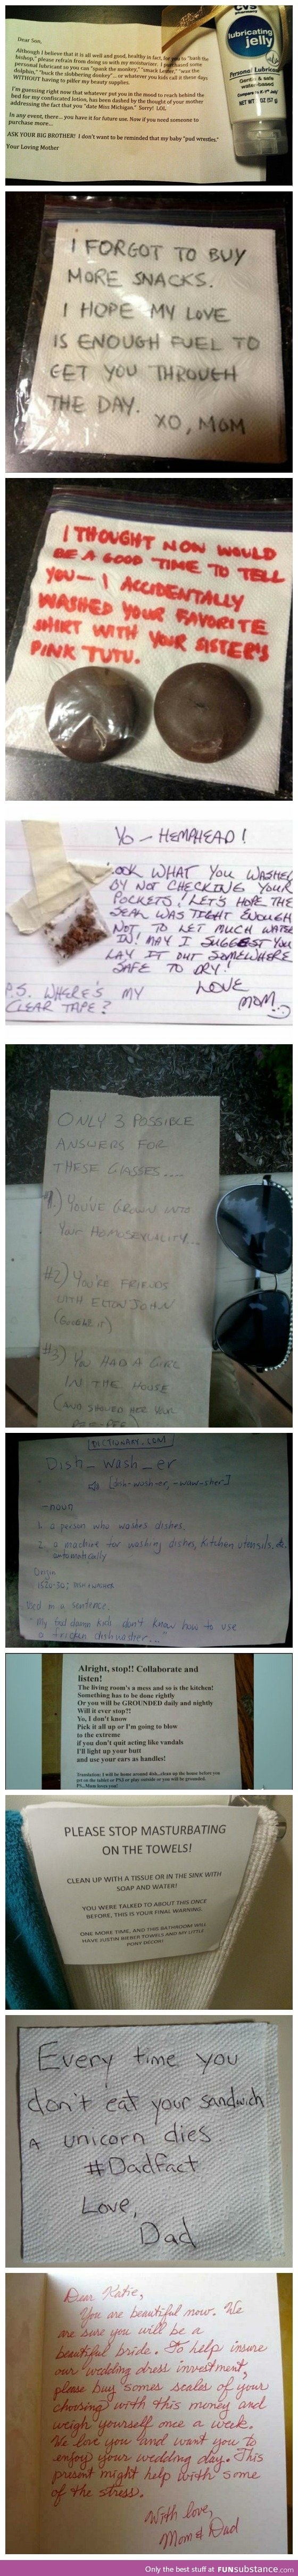 Dear Son,
Although I believe that it is all well and good, healthy in fact, for you to "bash the
bishop," please refrain from doing so with my moisturizer. I purchased some
personal lubricant so you can "spank the monkey," "smack Lester," "wax the
dolphin," "buck the slobbering donkey"... or whatever you kids call it these days,
WITHOUT having to pilfer my beauty supplies.
I'm guessing right now that whatever put you in the mood to reach behind the
bed for my confiscated lotion, has been dashed by the thought of your mother
addressing the fact that you "date Miss Michigan." Sorry! LOL
In any event, there... you have it for future use. Now if you need someone to
purchase more...
ASK YOUR BIG BROTHER! I don't want to be reminded that my baby "pud wrestles."
Your Loving Mother
CVS
pharmacy
lubricating
jelly
Personal Lubricant
Gentle & safe
water-based
NET WT 2OZ (57 g)
I FORGOT TO BUY
MORE SNACKS.
I HOPE MY LOVE
IS ENOUGH FUEL TO
GET YOU THROUGH
THE DAY.
XO, MOM
I THOUGHT NOW WOULD
BE A GOOD TIME TO TELL
YOU— I ACCIDENTALLY
WASHED YOUR FAVORITE
SHIRT WITH YOUR SISTER'S
PINK TUTU.
YO - HEMPHEAD!
LOOK WHAT YOU WASHED
BY NOT CHECKING YOUR
POCKETS! LET'S HOPE THE
SEAL WAS TIGHT ENOUGH
NOT TO LET MUCH WATER
IN! MAY I SUGGEST YOU
LAY IT OUT SOMEWHERE
SAFE TO DRY!
LOVE
MOM
P.S. WHERE'S MY
CLEAR TAPE?
ONLY 3 POSSIBLE
ANSWERS FOR
THESE GLASSES....
#1.) YOU'VE GROWN INTO
YOUR HOMOSEXUALITY...
#2) YOU'RE FRIENDS
WITH ELTON JOHN
(GOOGLE IT)
#3) YOU HAD A GIRL
IN THE HOUSE
(AND SHOWED HER YOUR
PEE-PEE)
DICTIONARY.COM
Dish_wash_er
[dish-wosh-er, -waw-sher]
-noun
1. a person who washes dishes.
2. a machine for washing dishes, kitchen utensils, etc.
automatically
Origin
1520-30; DISH + WASHER
Used in a sentence.
"My god damn kids don't know how to use
a friggin dishwasher..."
Alright, stop!! Collaborate and
listen!
The living room's a mess and so is the kitchen!
Something has to be done rightly
Or you will be GROUNDED daily and nightly
Will it ever stop?!
Yo, I don't know
Pick it all up or I'm going to blow
to the extreme
if you don't quit acting like vandals
I'll light up your butt
and use your ears as handles!
Translation: I will be home around 4ish, clean up the house before you
get on the tablet or PS3 or play outside or you will be grounded.
P.S. Mom loves you!
PLEASE STOP MASTURBATING
ON THE TOWELS!
CLEAN UP WITH A TISSUE OR IN THE SINK WITH
SOAP AND WATER!
YOU WERE TALKED TO ABOUT THIS ONCE
BEFORE, THIS IS YOUR FINAL WARNING.
ONE MORE TIME, AND THIS BATHROOM WILL
HAVE JUSTIN BIEBER TOWELS AND MY LITTLE
PONY DECOR!
Every time you
don't eat your sandwich
A unicorn dies.
#DadFact
Love,
Dad
Dear Katie,
You are beautiful now. We
are sure you will be a
beautiful bride. To help insure
our wedding dress investment,
please buy somes scales of your
choosing with this money and
weigh yourself once a week.
We love you and want you to
enjoy your wedding day. This
present might help with some
of the stress.
With love,
Mom & Dad
Only the best stuff at FUNSubstance.com